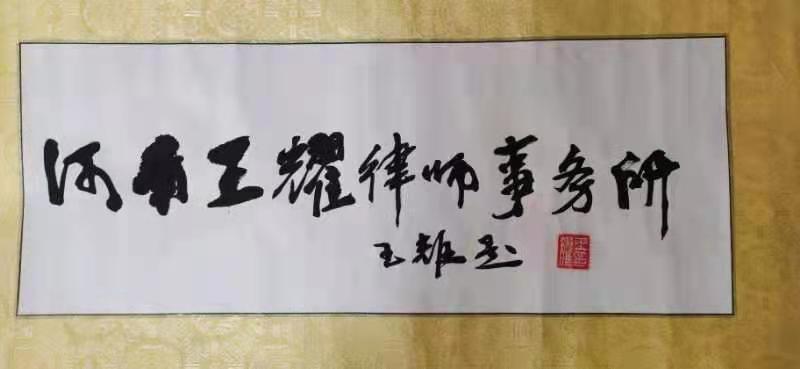 河南王耀律师事务所
王耀题